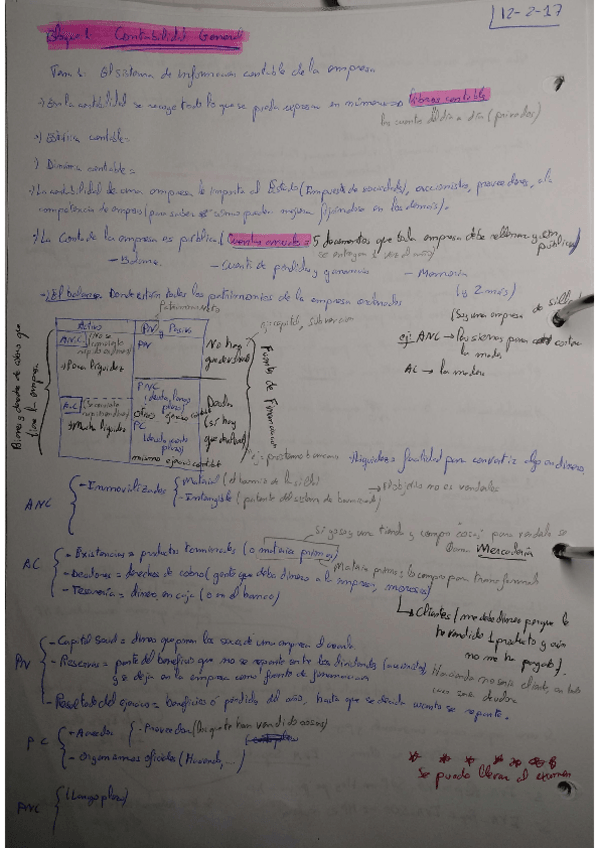 12-2-17
Bloque 1 Contabilidad General
Tema 1. El sistema de información contable de la empresa
En la contabilidad se recoge todo lo que se puede expresar en números libros contable
las cuentas del día a día (privados)
Estática contable =
Dinámica contable =
La contabilidad de una empresa le importa al Estado (Impuesto de sociedades), accionistas, proveedores, a la
competencia de empresa (para saber cómo pueden mejorar fijándose en los demás).
La Conta de la empresa es pública (Cuentas anuales = 5 documentos que toda empresa debe rellenar y son públicas)
se entregan 1 vez al año
- Balance - Cuenta de pérdidas y ganancias - Memoria
(y 2 más)
- El balance Donde están todos los patrimonios de la empresa ordenados
Patrimonio neto
ej: capital, subvención
(Soy una empresa de sillas)
Activo PN y Pasivo
ANC
→ Poco líquidos
PN
No hay que devolverlo
ej: ANC → Las sierras para cortar
la madera
AC → la madera
Bienes y derechos de cobro que tiene la empresa
Fuente de Financiación
PNC (deuda largo plazo)
otros ejercicio contable
AC
→ Mucho líquidos
PC (deuda corto plazo)
mismo ejercicio contable
Deuda (sí hay que devolverlo)
ej = préstamo bancario
→ liquidez = facilidad para convertir algo en dinero.
ANC
- Inmovilizados
- Material (el barniz de la silla)
- Intangible (patente del sistema de barnizado)
→ El objetivo no es venderlos
Si yo soy una tienda y compro cosas para venderlas se
llama Mercadería
AC
- Existencias = productos terminados (o materias primas)
Materia primas: lo compro para transformarlo
- Deudores = derechos de cobro (gente que debe dinero a la empresa, morosos)
- Tesorería = dinero en caja (o en el banco)
→ Clientes (me debe dinero porque le
he vendido 1 producto y aún
no me ha pagado).
PN
- Capital Social = dinero que ponen los socios de una empresa al crearla
- Reservas = parte del beneficio que no se reparte entre los dividendos (accionistas)
y se deja en la empresa como fuente de financiación
Hacienda no sería cliente, en todo
caso sería deudora
- Resultado del ejercicio = beneficios o pérdida del año, hasta que se decida cuanto se reparte.
PC
- Acreedor
- Proveedor (los que te han vendido cosas)
- Organismos oficiales (Hacienda, ...)
Se puede llevar al examen
PNC
(Largo plazo)